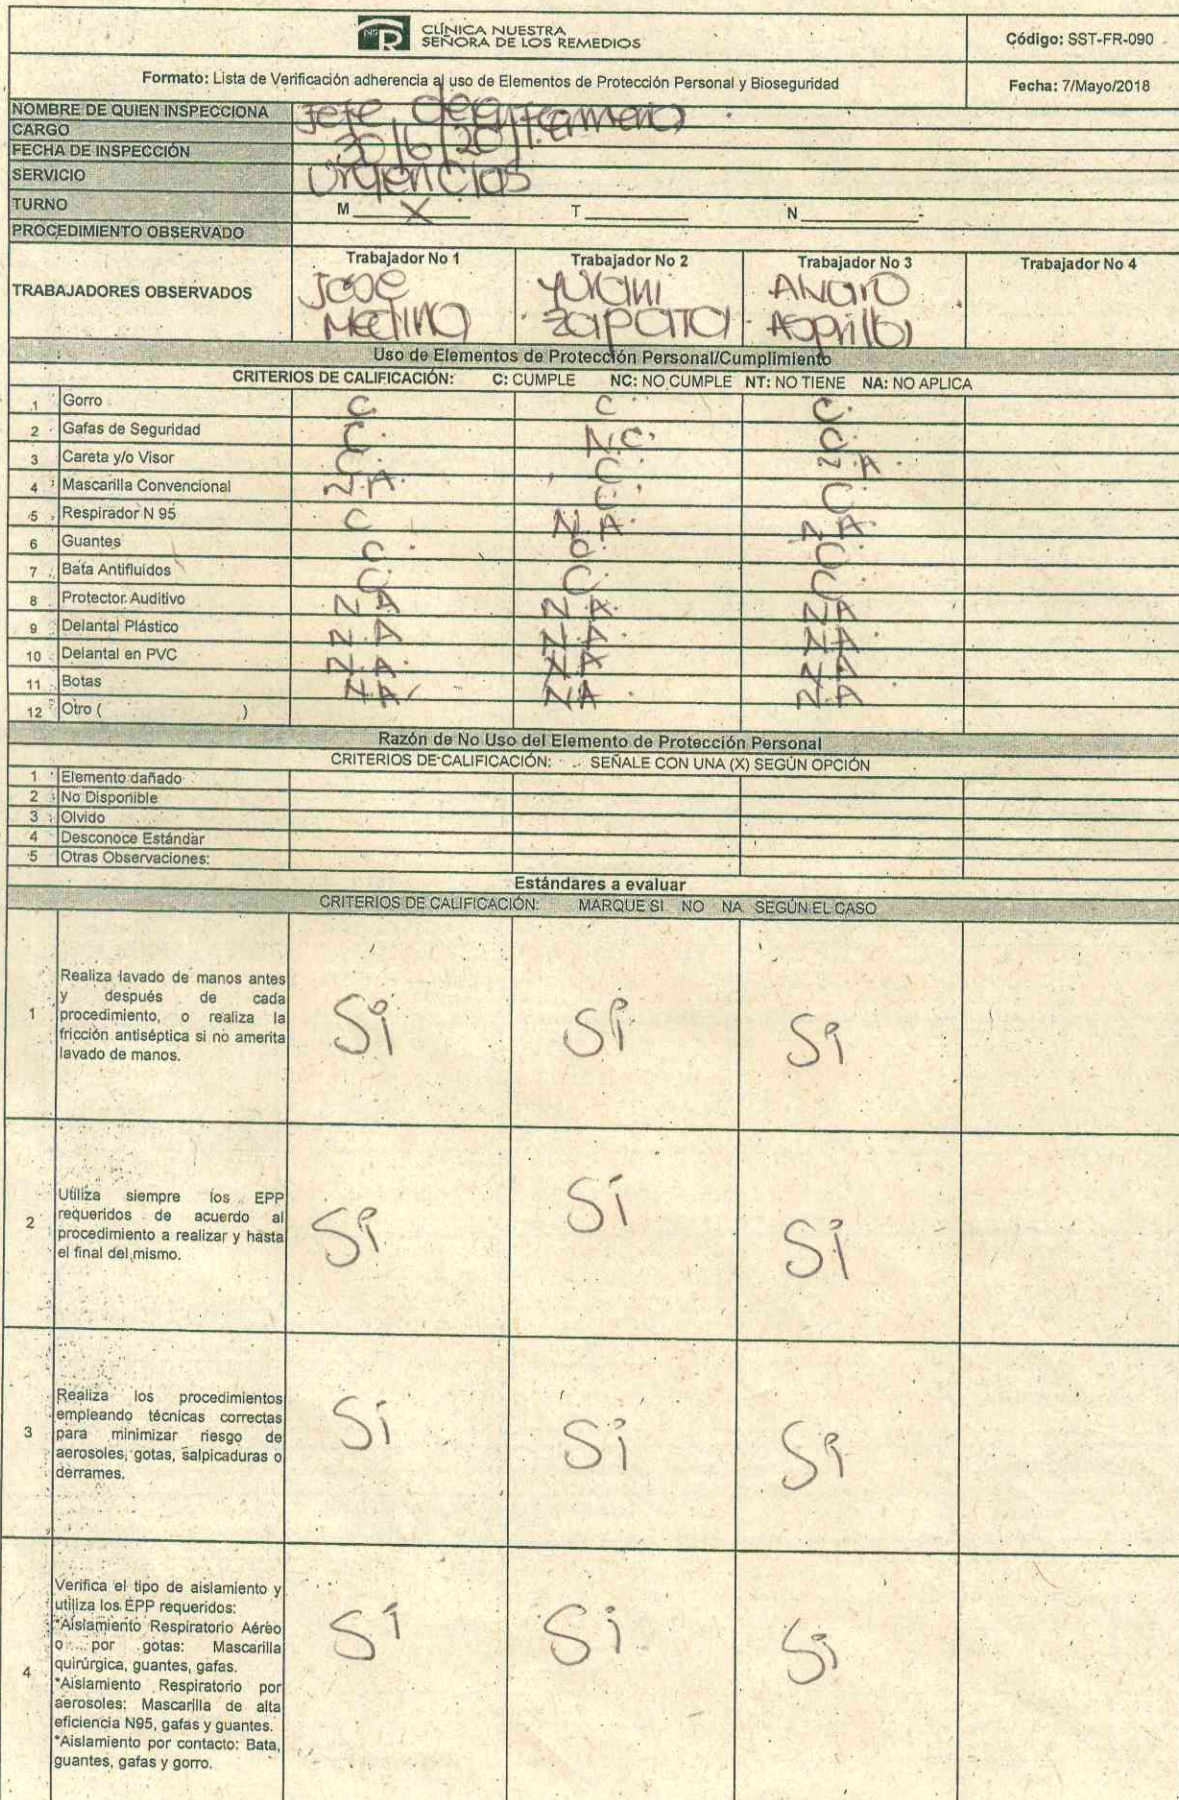 NSR CLÍNICA NUESTRA
SEÑORA DE LOS REMEDIOS
Código: SST-FR-090
Formato: Lista de Verificación adherencia al uso de Elementos de Protección Personal y Bioseguridad
Fecha: 7/Mayo/2018
NOMBRE DE QUIEN INSPECCIONA
CARGO Jefe de enfermeria
FECHA DE INSPECCIÓN 30/6/20
SERVICIO Urgencias
TURNO M X T N
PROCEDIMIENTO OBSERVADO
Trabajador No 1 Trabajador No 2 Trabajador No 3 Trabajador No 4
TRABAJADORES OBSERVADOS
Jose Yuliani Alvaro
Medina Zapata Asprilla
Uso de Elementos de Protección Personal/Cumplimiento
CRITERIOS DE CALIFICACIÓN: C: CUMPLE NC: NO CUMPLE NT: NO TIENE NA: NO APLICA
1 Gorro C C C
2 Gafas de Seguridad C N.C. C
3 Careta y/o Visor C C N.A
4 Mascarilla Convencional N.A. C C
5 Respirador N 95 C N.A. N.A.
6 Guantes C C C
7 Bata Antifluidos C C C
8 Protector Auditivo N A N.A. N A
9 Delantal Plástico N.A N.A. N.A
10 Delantal en PVC N.A. N.A N.A
11 Botas N.A NA N.A
12 Otro ( )
Razón de No Uso del Elemento de Protección Personal
CRITERIOS DE CALIFICACIÓN: SEÑALE CON UNA (X) SEGÚN OPCIÓN
1 Elemento dañado
2 No Disponible
3 Olvido
4 Desconoce Estándar
5 Otras Observaciones:
Estándares a evaluar
CRITERIOS DE CALIFICACIÓN: MARQUE SI NO NA SEGÚN EL CASO
Realiza lavado de manos antes
y después de cada
1 procedimiento, o realiza la
fricción antiséptica si no amerita
lavado de manos.
Si Si Si
Utiliza siempre los EPP
2 requeridos de acuerdo al
procedimiento a realizar y hasta
el final del mismo.
Si Si Si
Realiza los procedimientos
empleando técnicas correctas
3 para minimizar riesgo de
aerosoles, gotas, salpicaduras o
derrames.
Si Si Si
Verifica el tipo de aislamiento y
utiliza los EPP requeridos:
*Aislamiento Respiratorio Aéreo
o por gotas: Mascarilla
quirúrgica, guantes, gafas.
4 *Aislamiento Respiratorio por
aerosoles: Mascarilla de alta
eficiencia N95, gafas y guantes.
*Aislamiento por contacto: Bata,
guantes, gafas y gorro.
Si Si Si